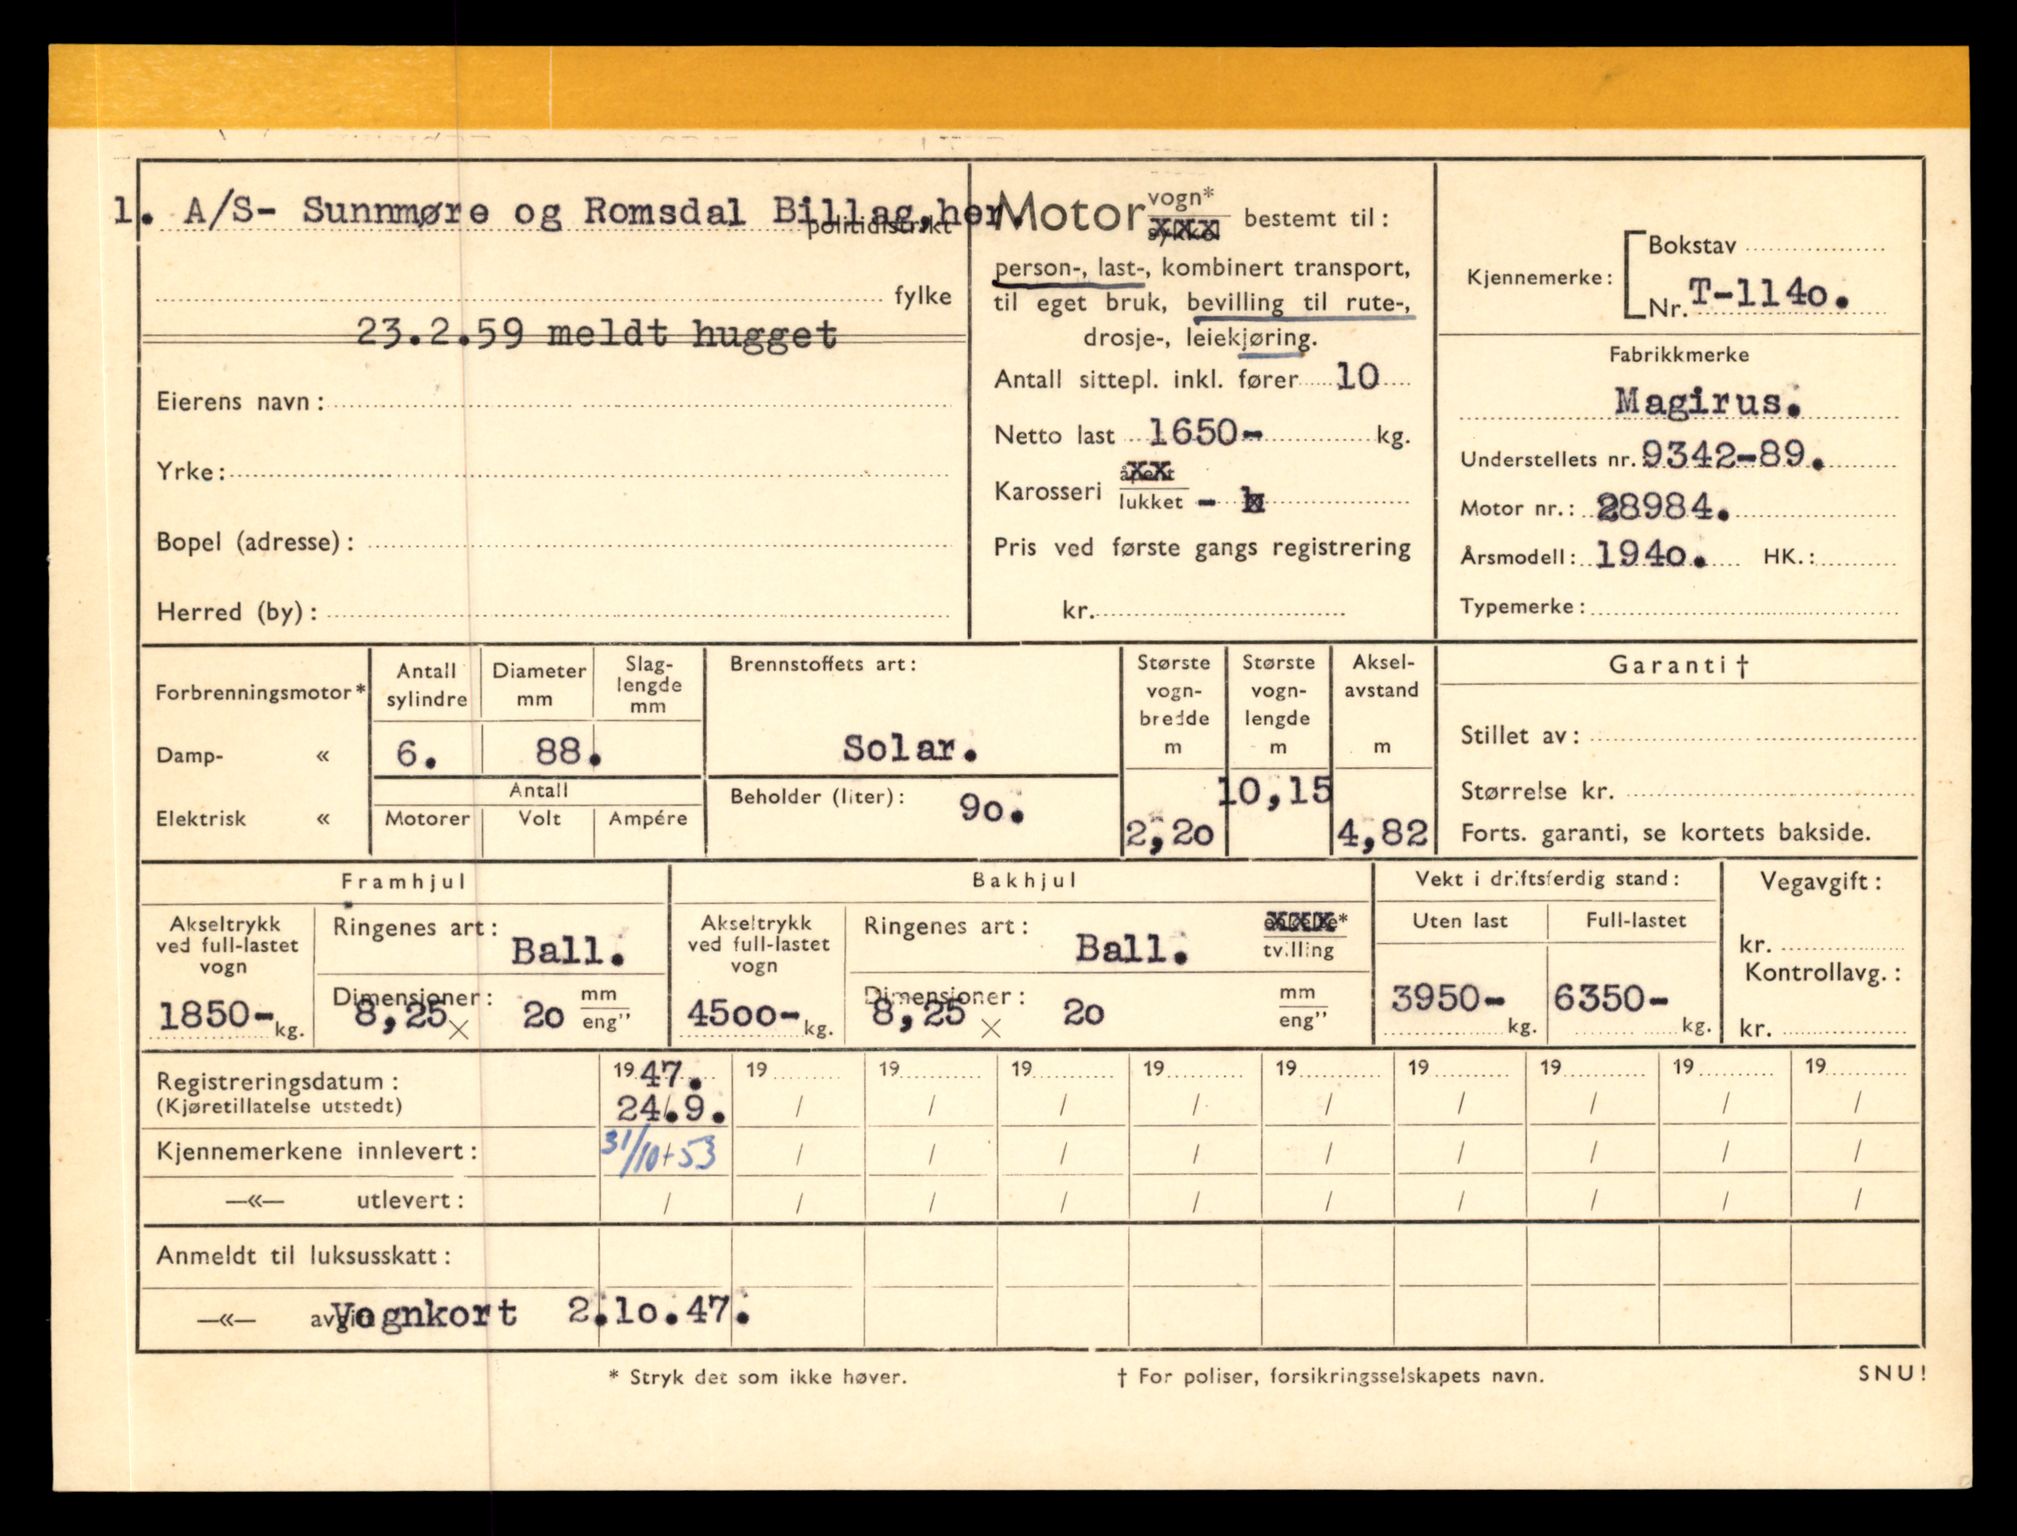 1. A/S- Sunnmøre og Romsdal Billag, her.
politidistrikt
fylke
23.2.59 meldt hugget
Eierens navn:
Yrke:
Bopel (adresse):
Herred (by):
Motor vogn*
bestemt til:
person-, last-, kombinert transport,
til eget bruk, bevilling til rute-,
drosje-, leiekjøring.
Antall sittepl. inkl. fører 10
Netto last 1650- kg.
Karosseri åpent
lukket -
Pris ved første gangs registrering
kr.
Kjennemerke: Bokstav
Nr. T-1140.
Fabrikkmerke
Magirus.
Understellets nr. 9342-89.
Motor nr.: 28984.
Årsmodell: 1940. HK.:
Typemerke:
Forbrenningsmotor*
Damp- «
Elektrisk «
Antall sylindre
6.
Diameter mm
88.
Slag-
lengde
mm
Antall
Motorer Volt Ampére
Brennstoffets art:
Solar.
Beholder (liter): 90.
Største
vogn-
bredde
m
2,20
Største
vogn-
lengde
m
10,15
Aksel-
avstand
m
4,82
Garanti †
Stillet av:
Størrelse kr.
Forts. garanti, se kortets bakside.
Framhjul
Akseltrykk
ved full-lastet
vogn
1850- kg.
Ringenes art: Ball.
Dimensjoner:
8,25 × 20 mm
eng"
Bakhjul
Akseltrykk
ved full-lastet
vogn
4500- kg.
Ringenes art: Ball. enkelte*
tvilling
Dimensjoner:
8,25 × 20 mm
eng"
Vekt i driftsferdig stand:
Uten last Full-lastet
3950- kg. 6350- kg.
Vegavgift:
kr.
Kontrollavg.:
kr.
Registreringsdatum: 1947. 19 19 19 19 19 19 19 19 19
(Kjøretillatelse utstedt) 24/.9. / / / / / / / / /
Kjennemerkene innlevert: 31/10-53 / / / / / / / / /
—«— utlevert: / / / / / / / / / /
Anmeldt til luksusskatt:
—«— Vognkort 2.10.47.
* Stryk det som ikke høver.
† For poliser, forsikringsselskapets navn.
SNU!